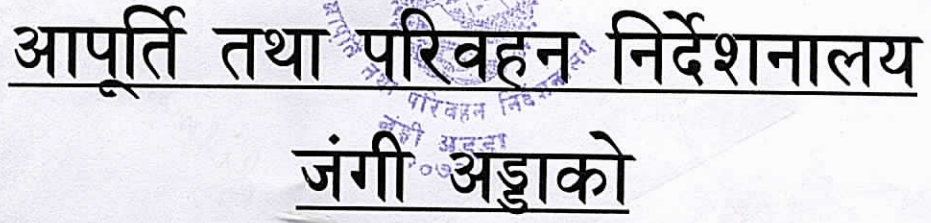 आपूर्ति तथा परिवहन निर्देशनालय
जंगी अड्डाको